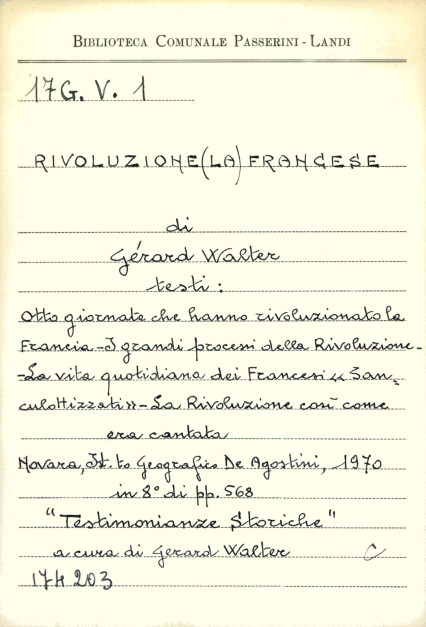 BIBLIOTECA COMUNALE PASSERINI - LANDI
17 G. V. 1
RIVOLUZIONE (LA) FRANCESE
di
Gérard Walter
testi :
Otto giornate che hanno rivoluzionato la
Francia - I grandi processi della Rivoluzione -
- La vita quotidiana dei Francesi « San,
culottizzati » - La Rivoluzione così come
era cantata
Novara, Ist.to Geografico De Agostini, 1970
in 8° di pp. 568
"Testimonianze Storiche"
a cura di Gerard Walter C
174203